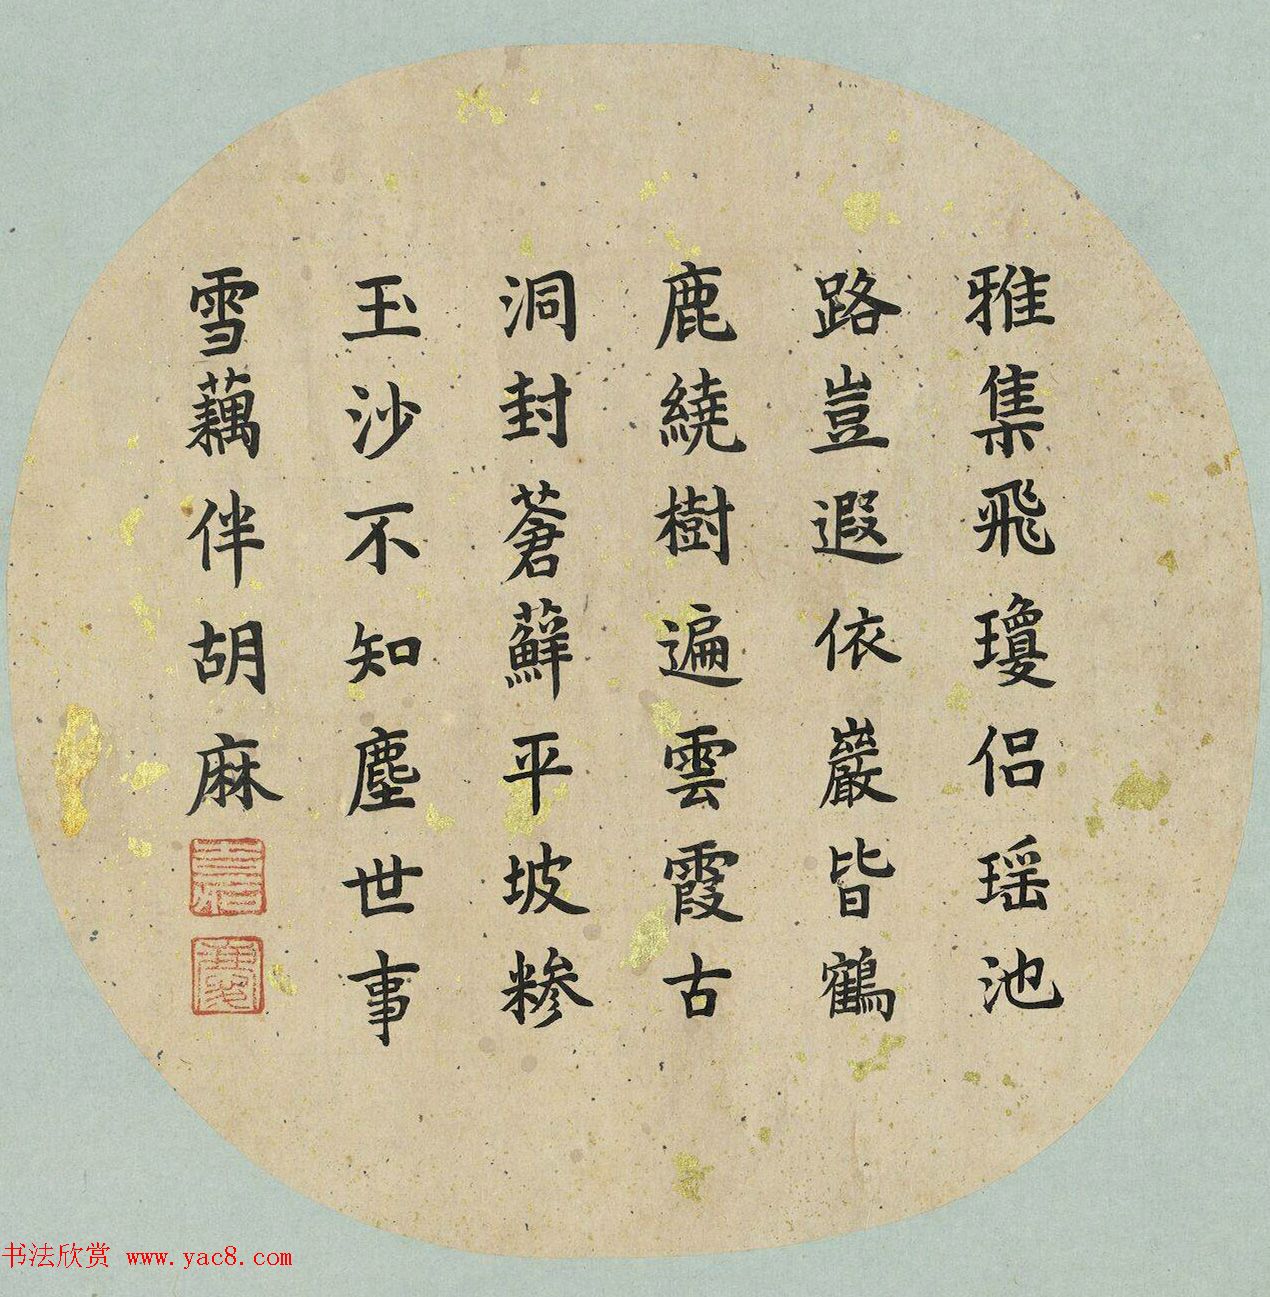 雅集飛瓊侣瑶池
路豈遐依巖皆鶴
鹿繞樹遍雲霞古
洞封蒼蘚平坡糁
玉沙不知塵世事
雪藕伴胡麻
书法欣赏 www.yac8.com